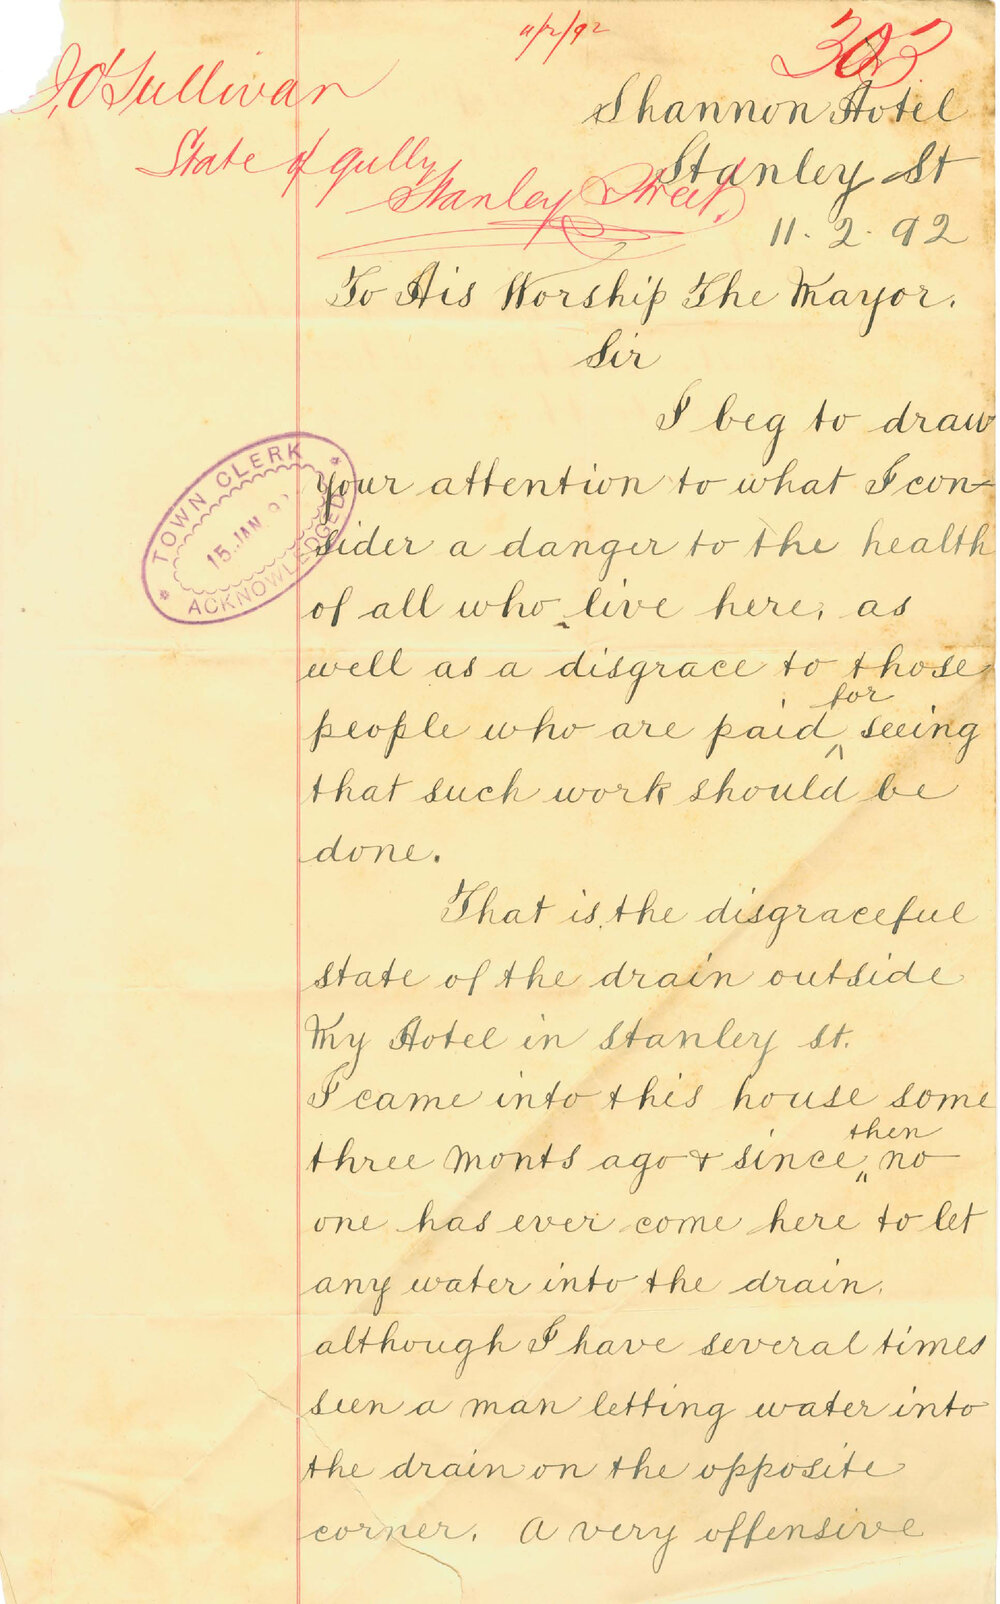 11/2/92
303
J. O'Sullivan
State of gully
Stanley Street.
Shannon Hotel
Stanley St
11. 2. 92
To His Worship The Mayor.
Sir
I beg to draw
your attention to what I con-
sider a danger to the health
of all who live here, as
well as a disgrace to those
for
people who are paid ^ seeing
that such work should be
done.
That is, the disgraceful
state of the drain outside
My Hotel in Stanley St.
I came into this house some
then
three monts ago & since " no
one has ever come here to let
any water into the drain.
although I have several times
seen a man letting water into
the drain on the opposite
corner. A very offensive
TOWN CLERK
15. JAN. 9
ACKNOWLEDGED